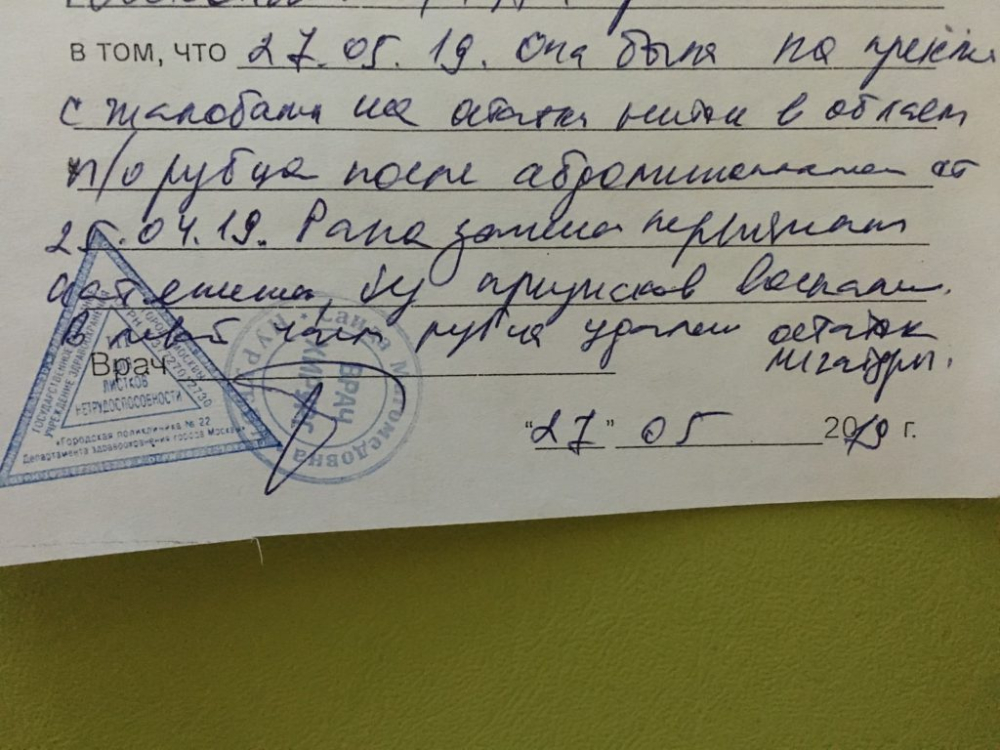 в том, что 27.05.19. Она была на приёме
с жалобами на остатки нитки в области
п/о рубца после абдоминопластики от
25.04.19. Рана зажила первичным
натяжением, б/у признаков воспален.
В левой части рубца удален остаток
лигатуры.
Врач
"27" 05 2019 г.
ЛИСТКОВ
НЕТРУДОСПОСОБНОСТИ
«Городская поликлиника № 22
Департамента здравоохранения города Москвы»
ГОСУДАРСТВЕННОЕ
УЧРЕЖДЕНИЕ ЗДРАВООХРАНЕНИЯ
ВРАЧ
ХИРУРГ